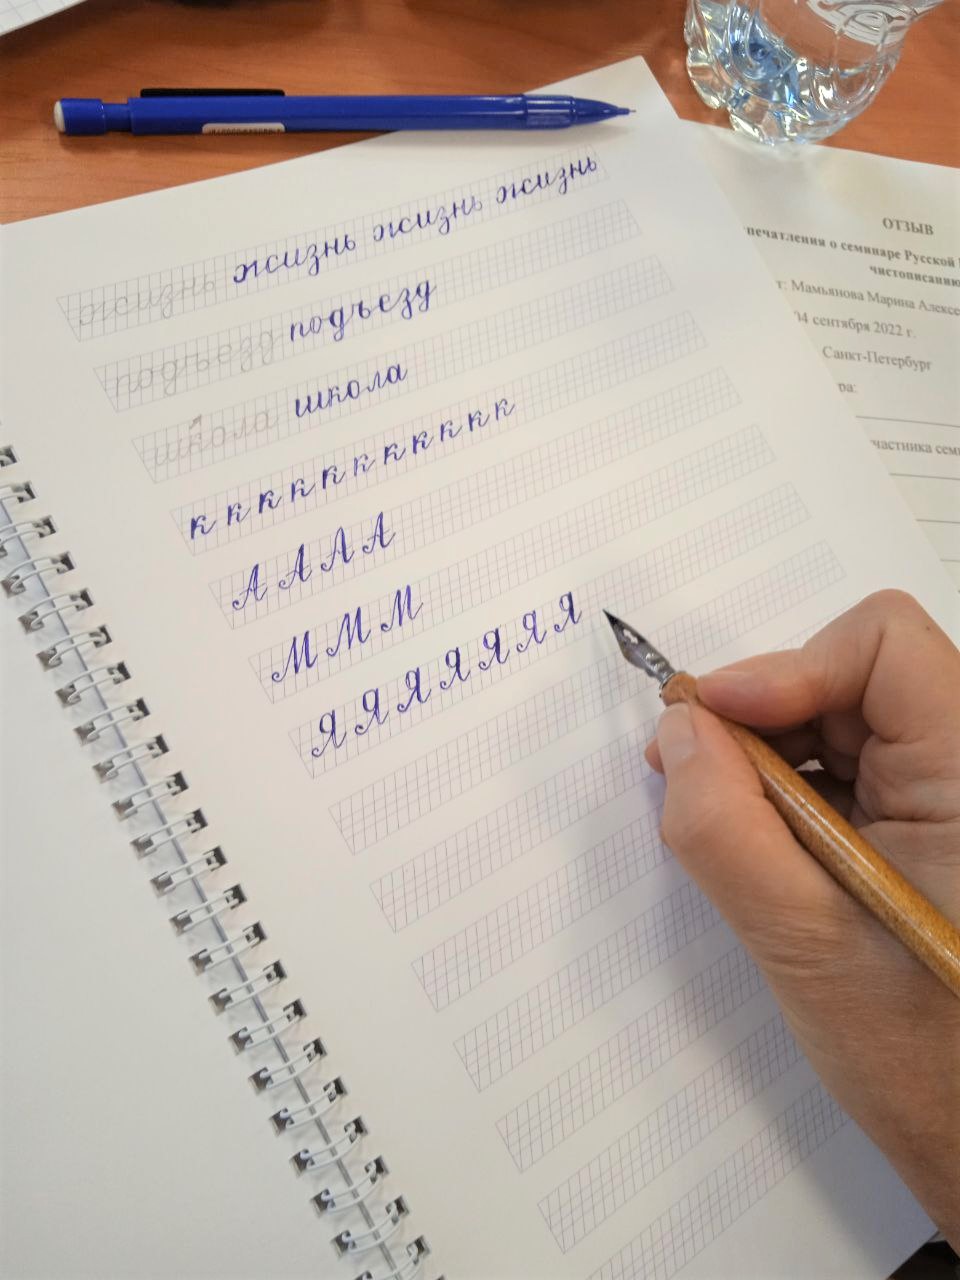 жизнь жизнь жизнь жизнь
подъезд подъезд
школа школа
к к к к к к к к к к к
А А А А
М М М
Я Я Я Я Я Я Я
ОТЗЫВ
печатления о семинаре Русской
чистописанию
т: Мамьянова Марина Алексе
04 сентября 2022 г.
Санкт-Петербург
ра:
частника сем